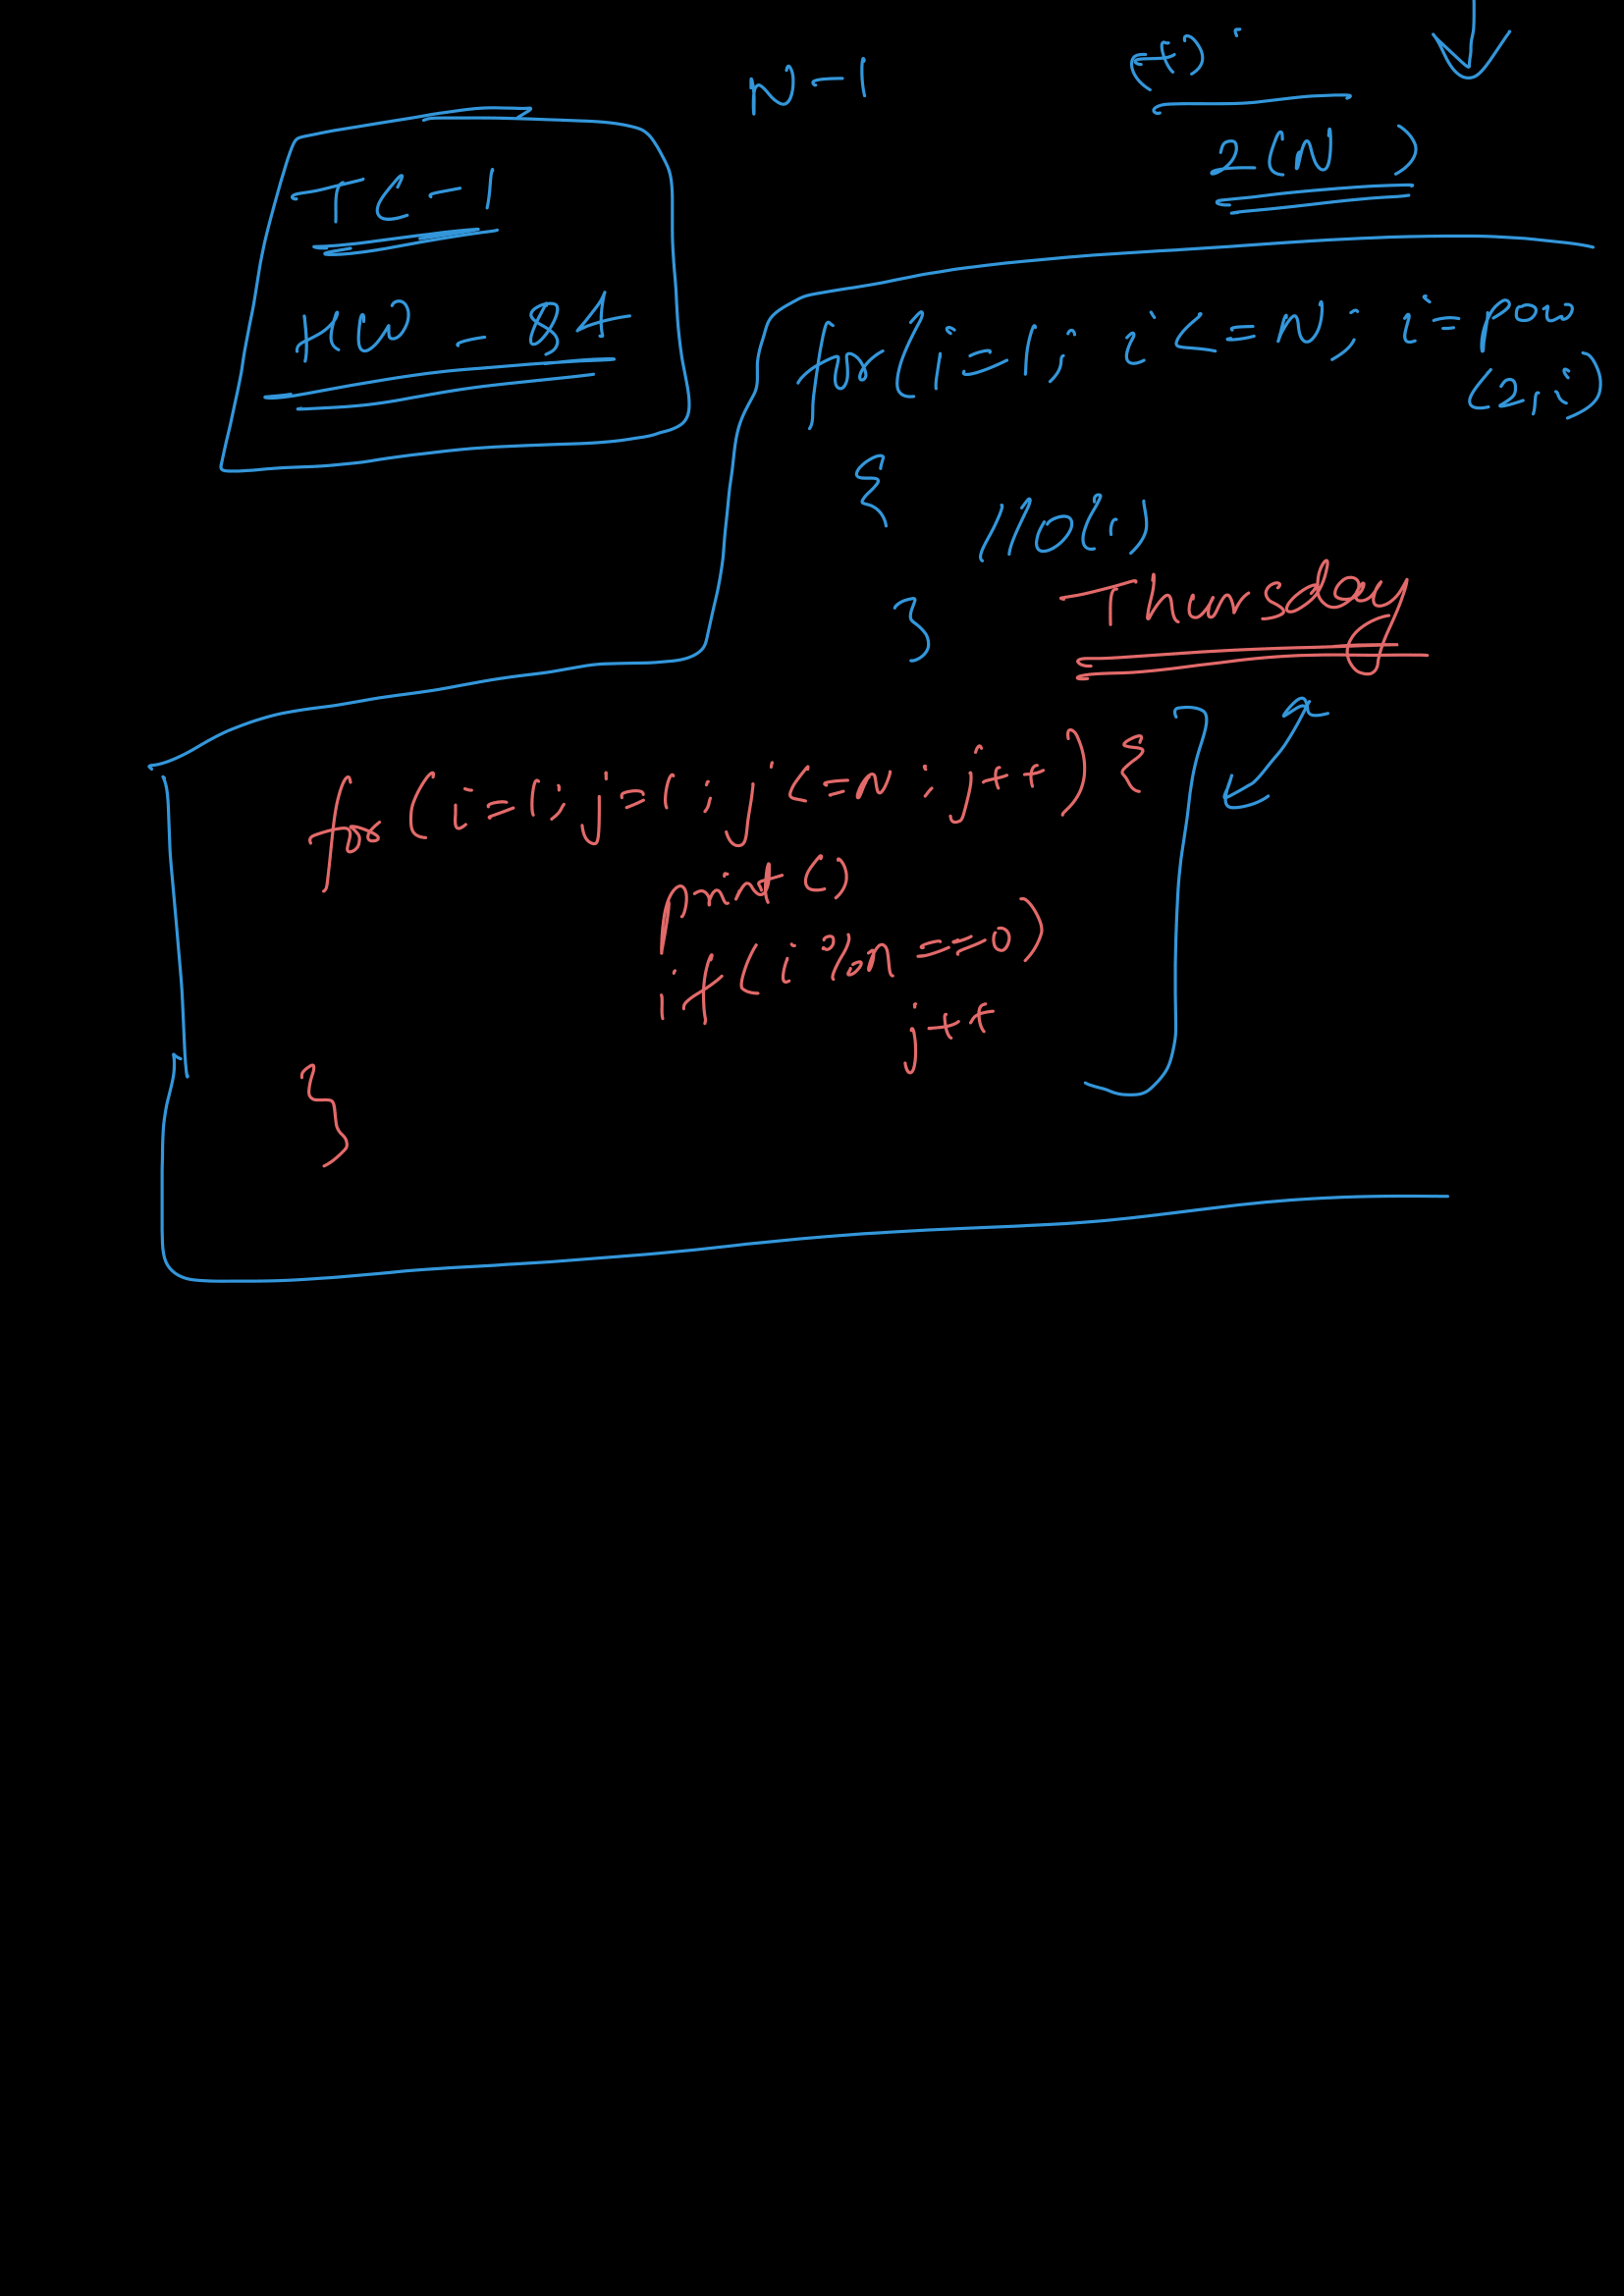 N-1
2(N )
TC-1
HW - 84
for(i=1; i<=N; i=pow
(2,i)
{
//O(1)
}
Thursday
for(i=1; j=1; j<=n; j++){
print()
if(i%n==0)
j++
}